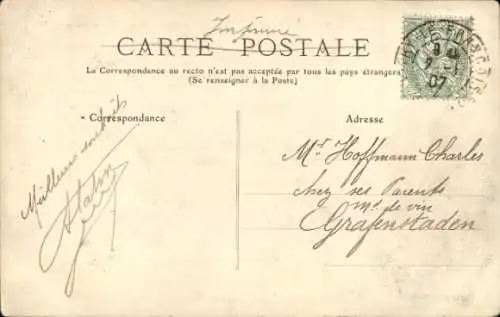 Imprimé
CARTE POSTALE
La Correspondance au recto n'est pas acceptée par tous les pays étrangers
(Se renseigner à la Poste)
Correspondance
Adresse
Meilleurs souhaits
Mr Hoffmann Charles
chez ses Parents
md. de vin
Grafenstaden
07